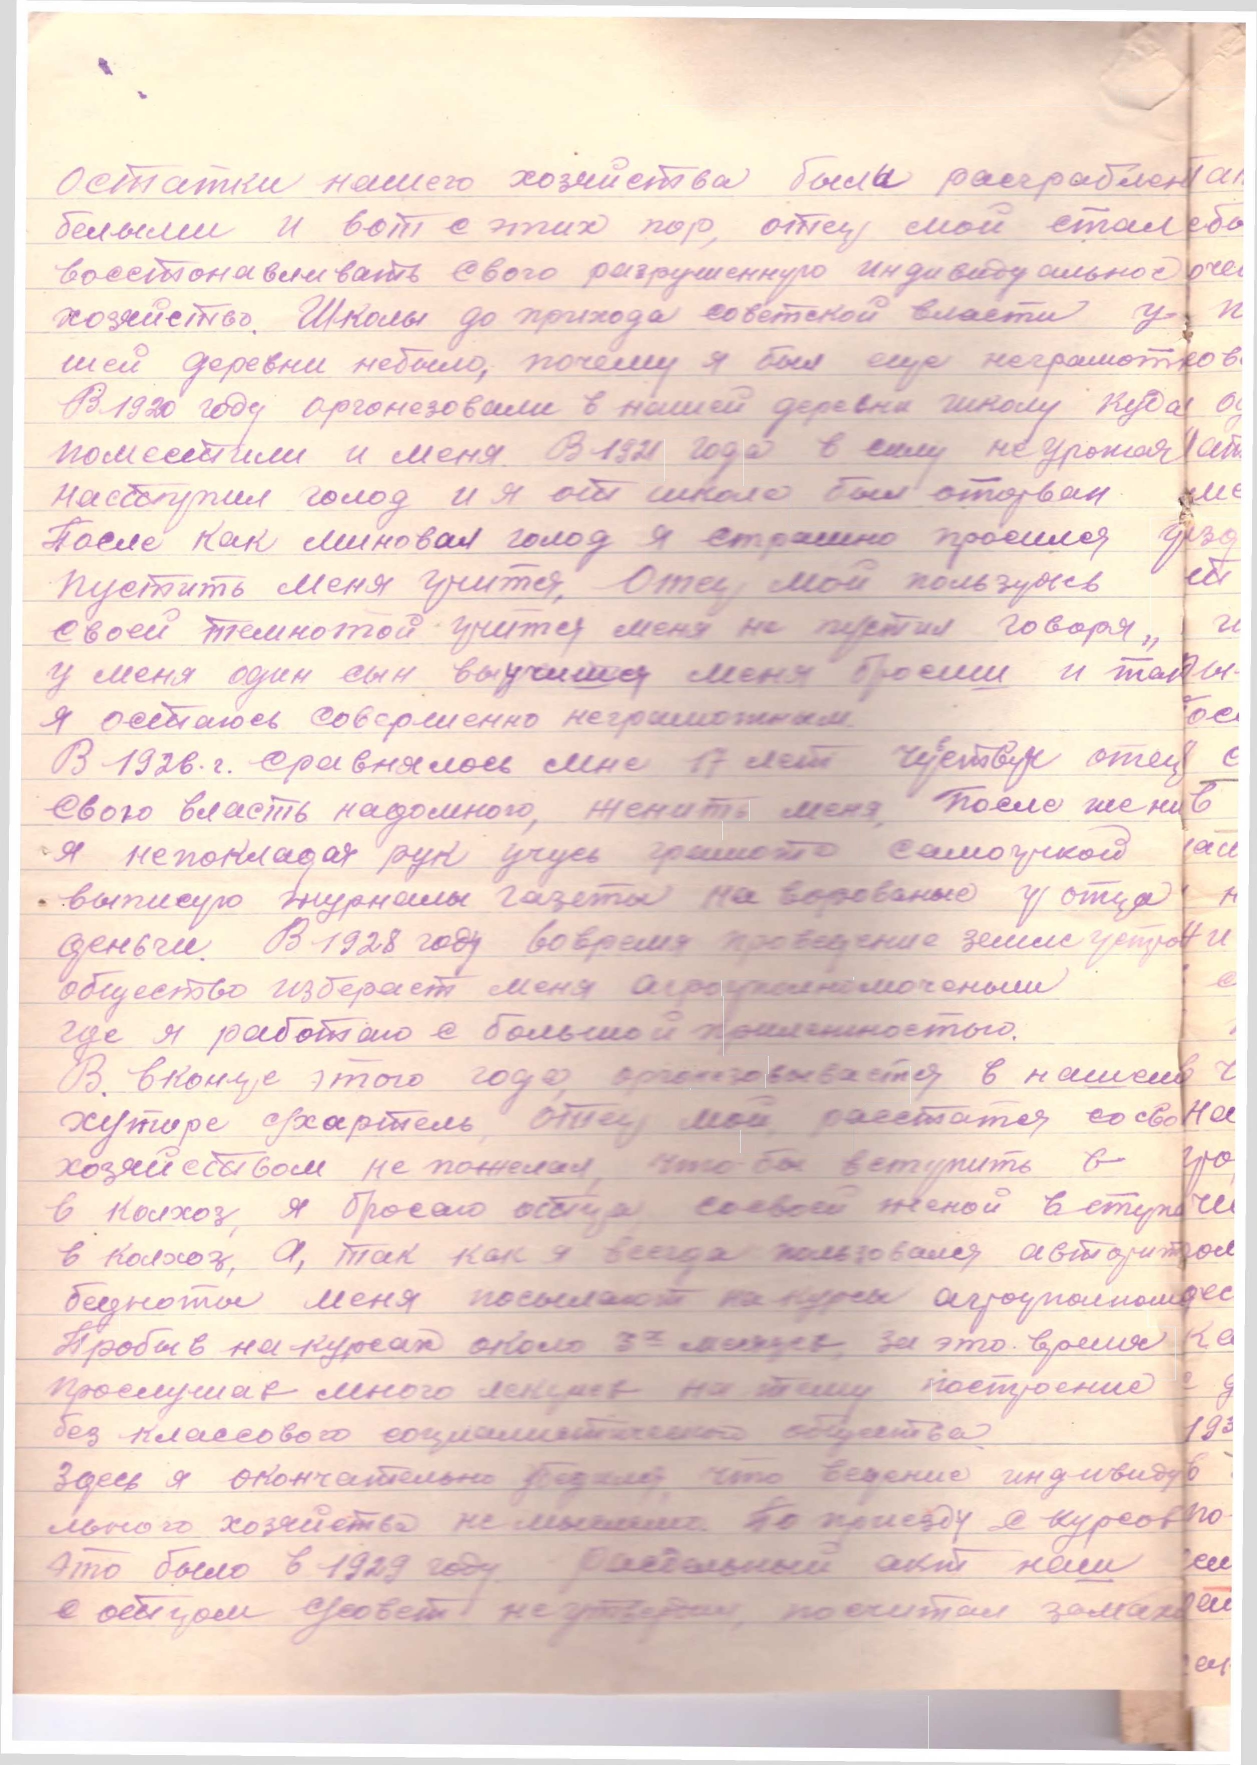 Остатки нашего хозяйства были расграблен
белыми и вот с этих пор, отец мой стал
восстонавливать свого разрушенную индивидуальное
хозяйство. Школы до прихода советской власти у
шей деревни небыло, почему я был еще неграмот
В 1920 году оргонезовали в нашей деревни школу куда
поместили и меня В 1921 года в силу не урожая
наступил голод и я от школы был оторван
После как миновал голод я страшно просился
пустить меня учится, Отец мой пользуясь
своей темнотой учится меня не пустил говоря „
у меня один сын выучится меня бросит и так
я остаюсь совершенно неграмотным
В 1926.г. сравнялось мне 17 лет чуствуя отец
свою власть надомного, женить меня. После жени
я непокладая рук учусь грамоте самоучкой
выписую журналы газеты на ворованые у отца
деньги. В 1928 году вовремя проведение землеустрой
общество избераст меня агроуполномоченым
где я работаю с большой прилежностью.
В. вконце этого года, оргонезовывается в нашем
хуторе с/хартель, отец мой, расстатся сосво
хозяйством не пожелал, что-бы вступить в
в колхоз, я бросаю отца, сосвоей женой вступ
в колхоз, А, так как я всегда пользовался авторит
бедноты меня посылают на курсы агроуполном
Пробыв на курсах около 3х месяцев, за это время
прослушав много лекциев на тему построение
без классового социалистического общества.
Здесь я окончательно убедился, что ведение индивиду
льного хозяйства не мыслимо. По приезду с курсов
это было в 1929 году. Раздельный акт наш
с отцом с/совет не утвердил, посчитал